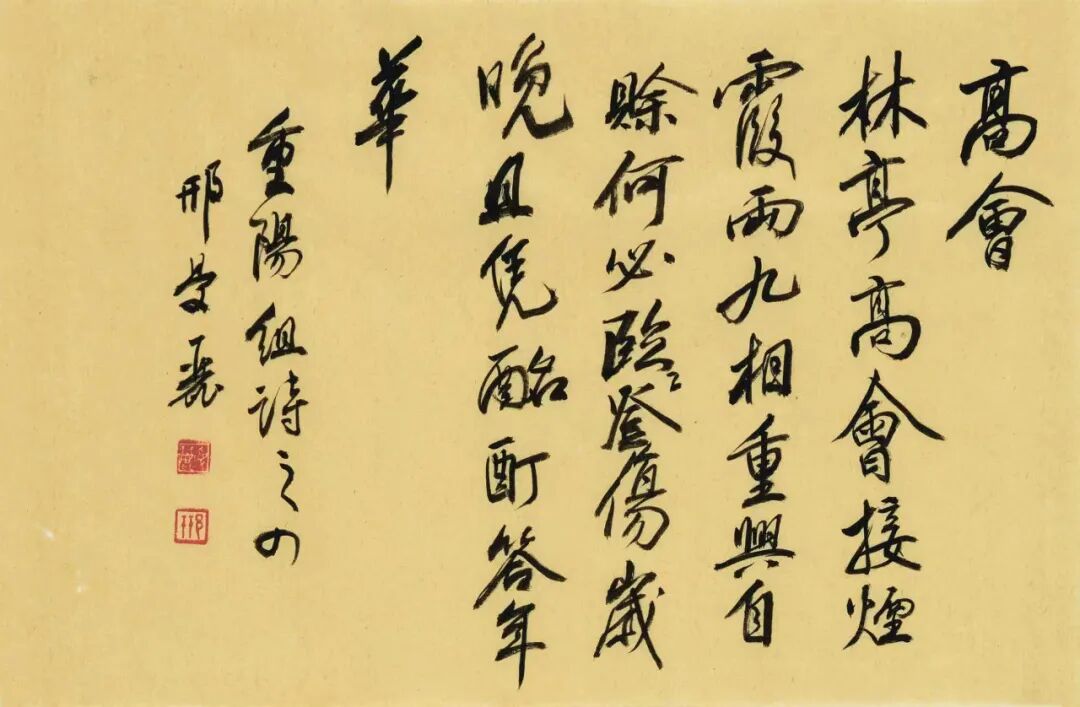 高會
林亭高會接煙
霞兩九相重興自
賒何必臨登傷歲
晚且凭酩酊答年
華
重陽組詩之四
邢曼麗
邢